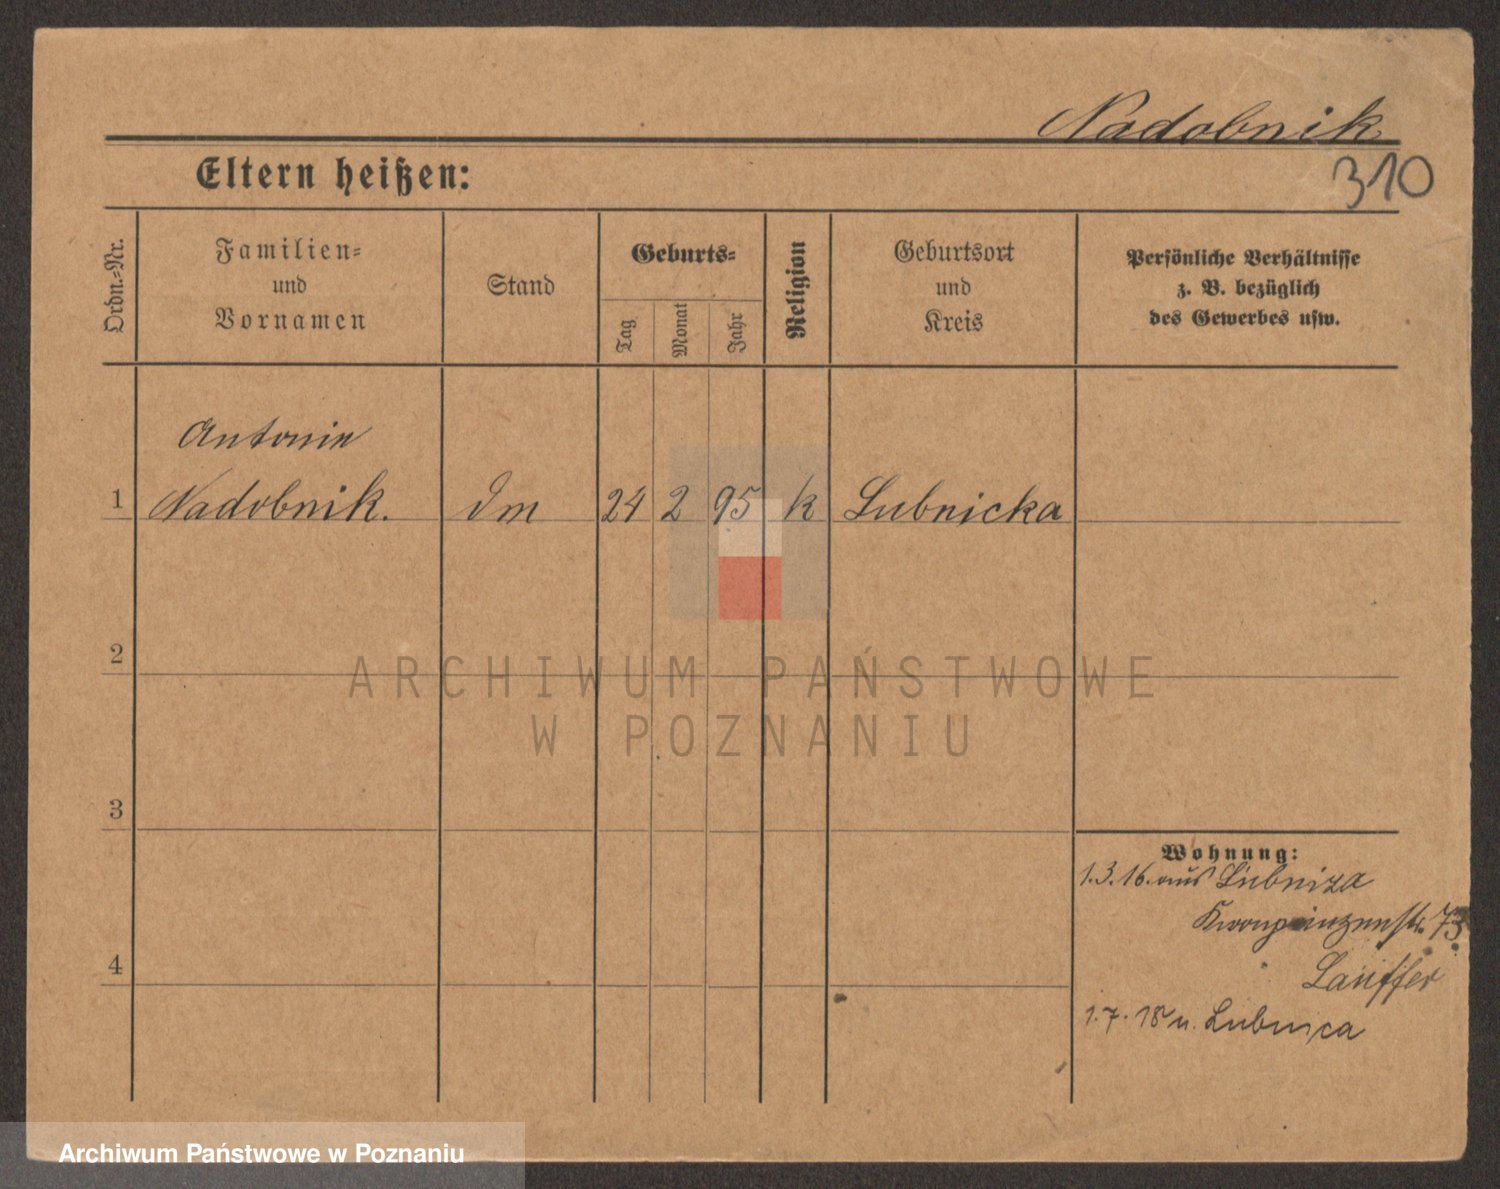 Nadobnik
310
Eltern heißen:
Ordn.-Nr.
Familien-
und
Vornamen
Stand
Geburts-
Tag
Monat
Jahr
Religion
Geburtsort
und
Kreis
Persönliche Verhältnisse
z. B. bezüglich
des Gewerbes usw.
Antonie
1 Nadobnik. Dm 24 2 95 k Lubnicka
2
ARCHIWUM PAŃSTWOWE
W POZNANIU
3
Wohnung:
1.3.16. aus Lubniza
Kronprinzenstr. 73
Lauffer
4
1.7.18 n. Lubnica
Archiwum Państwowe w Poznaniu